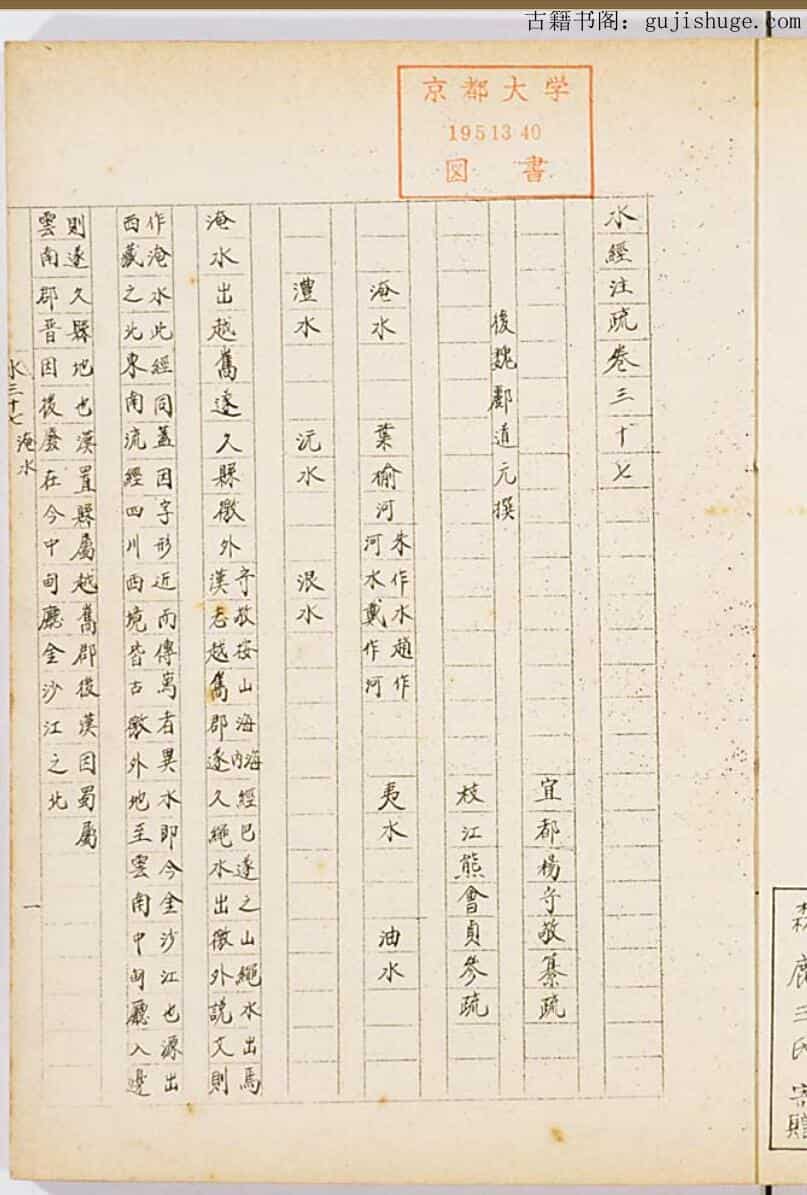 古籍书阁：gujishuge.com
京都大学
1951340
図書
水經注疏卷三十七
後魏酈道元撰
宜都楊守敬纂疏
枝江熊會貞參疏
淹水 葉榆河 朱作水趙作
河水戴作河 夷水 油水
澧水 沅水 泿水
淹水出越巂遂久縣徼外 守敬按山海海内經巴遂之山繩水出焉
漢志越巂郡遂久繩水出徼外說文則
作淹水此經同蓋因字形近而傳寫者異水即今金沙江也源出
西藏之北東南流經四川西境皆古徼外地至雲南中甸廳入邊
則遂久縣地也漢置縣屬越巂郡後漢因蜀屬
雲南郡晉因後廢在今中甸廳金沙江之北
水三十七 淹水 一
森鹿三氏寄贈